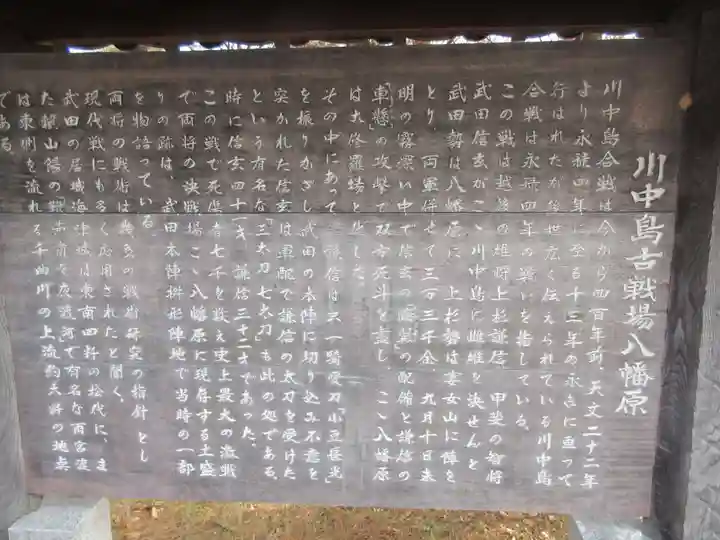 川中島古戦場八幡原
川中島合戦は今から四百年前、天文二十二年
より永禄四年に至る十三年の永きに亘って
行はれたが後世広く伝えられている川中島
合戦は永禄四年の戦いを指している。
この戦は越後の雄将上杉謙信、甲斐の智将
武田信玄がこゝ川中島に雌雄を決せんと
武田勢は八幡原に、上杉勢は妻女山に陣を
とり、両軍併せて三万三千余、九月十日未
明の霧深い中で信玄の配備と謙信の
「車懸」の攻撃で双方死斗を盡し、こゝ八幡原
は大修羅場と化した。
その中にあって、謙信は只一騎愛刀「小豆長光」
を振りかざし武田の本陣に切り込み不意を
突かれた信玄は軍配で謙信の太刀を受けた
という有名な「三太刀七太刀」も此の処である。
時に信玄四十一才、謙信三十二才であった。
この戦で死傷者七千を数え史上最大の激戦
で両将の決戦場こゝ八幡原に現存する土盛
りの跡は、武田本陣桝形陣地で当時の一部
を物語っている。
両将の戦術は幾多の戦術研究の指針とし
現代戦にも多く応用されたと聞く。
武田の居城海津城は東南四粁の松代に、ま
た頼山陽の鞭声粛々夜渡河で有名な雨宮渡
は東側を流れる千曲川の上流約六粁の地点
である。